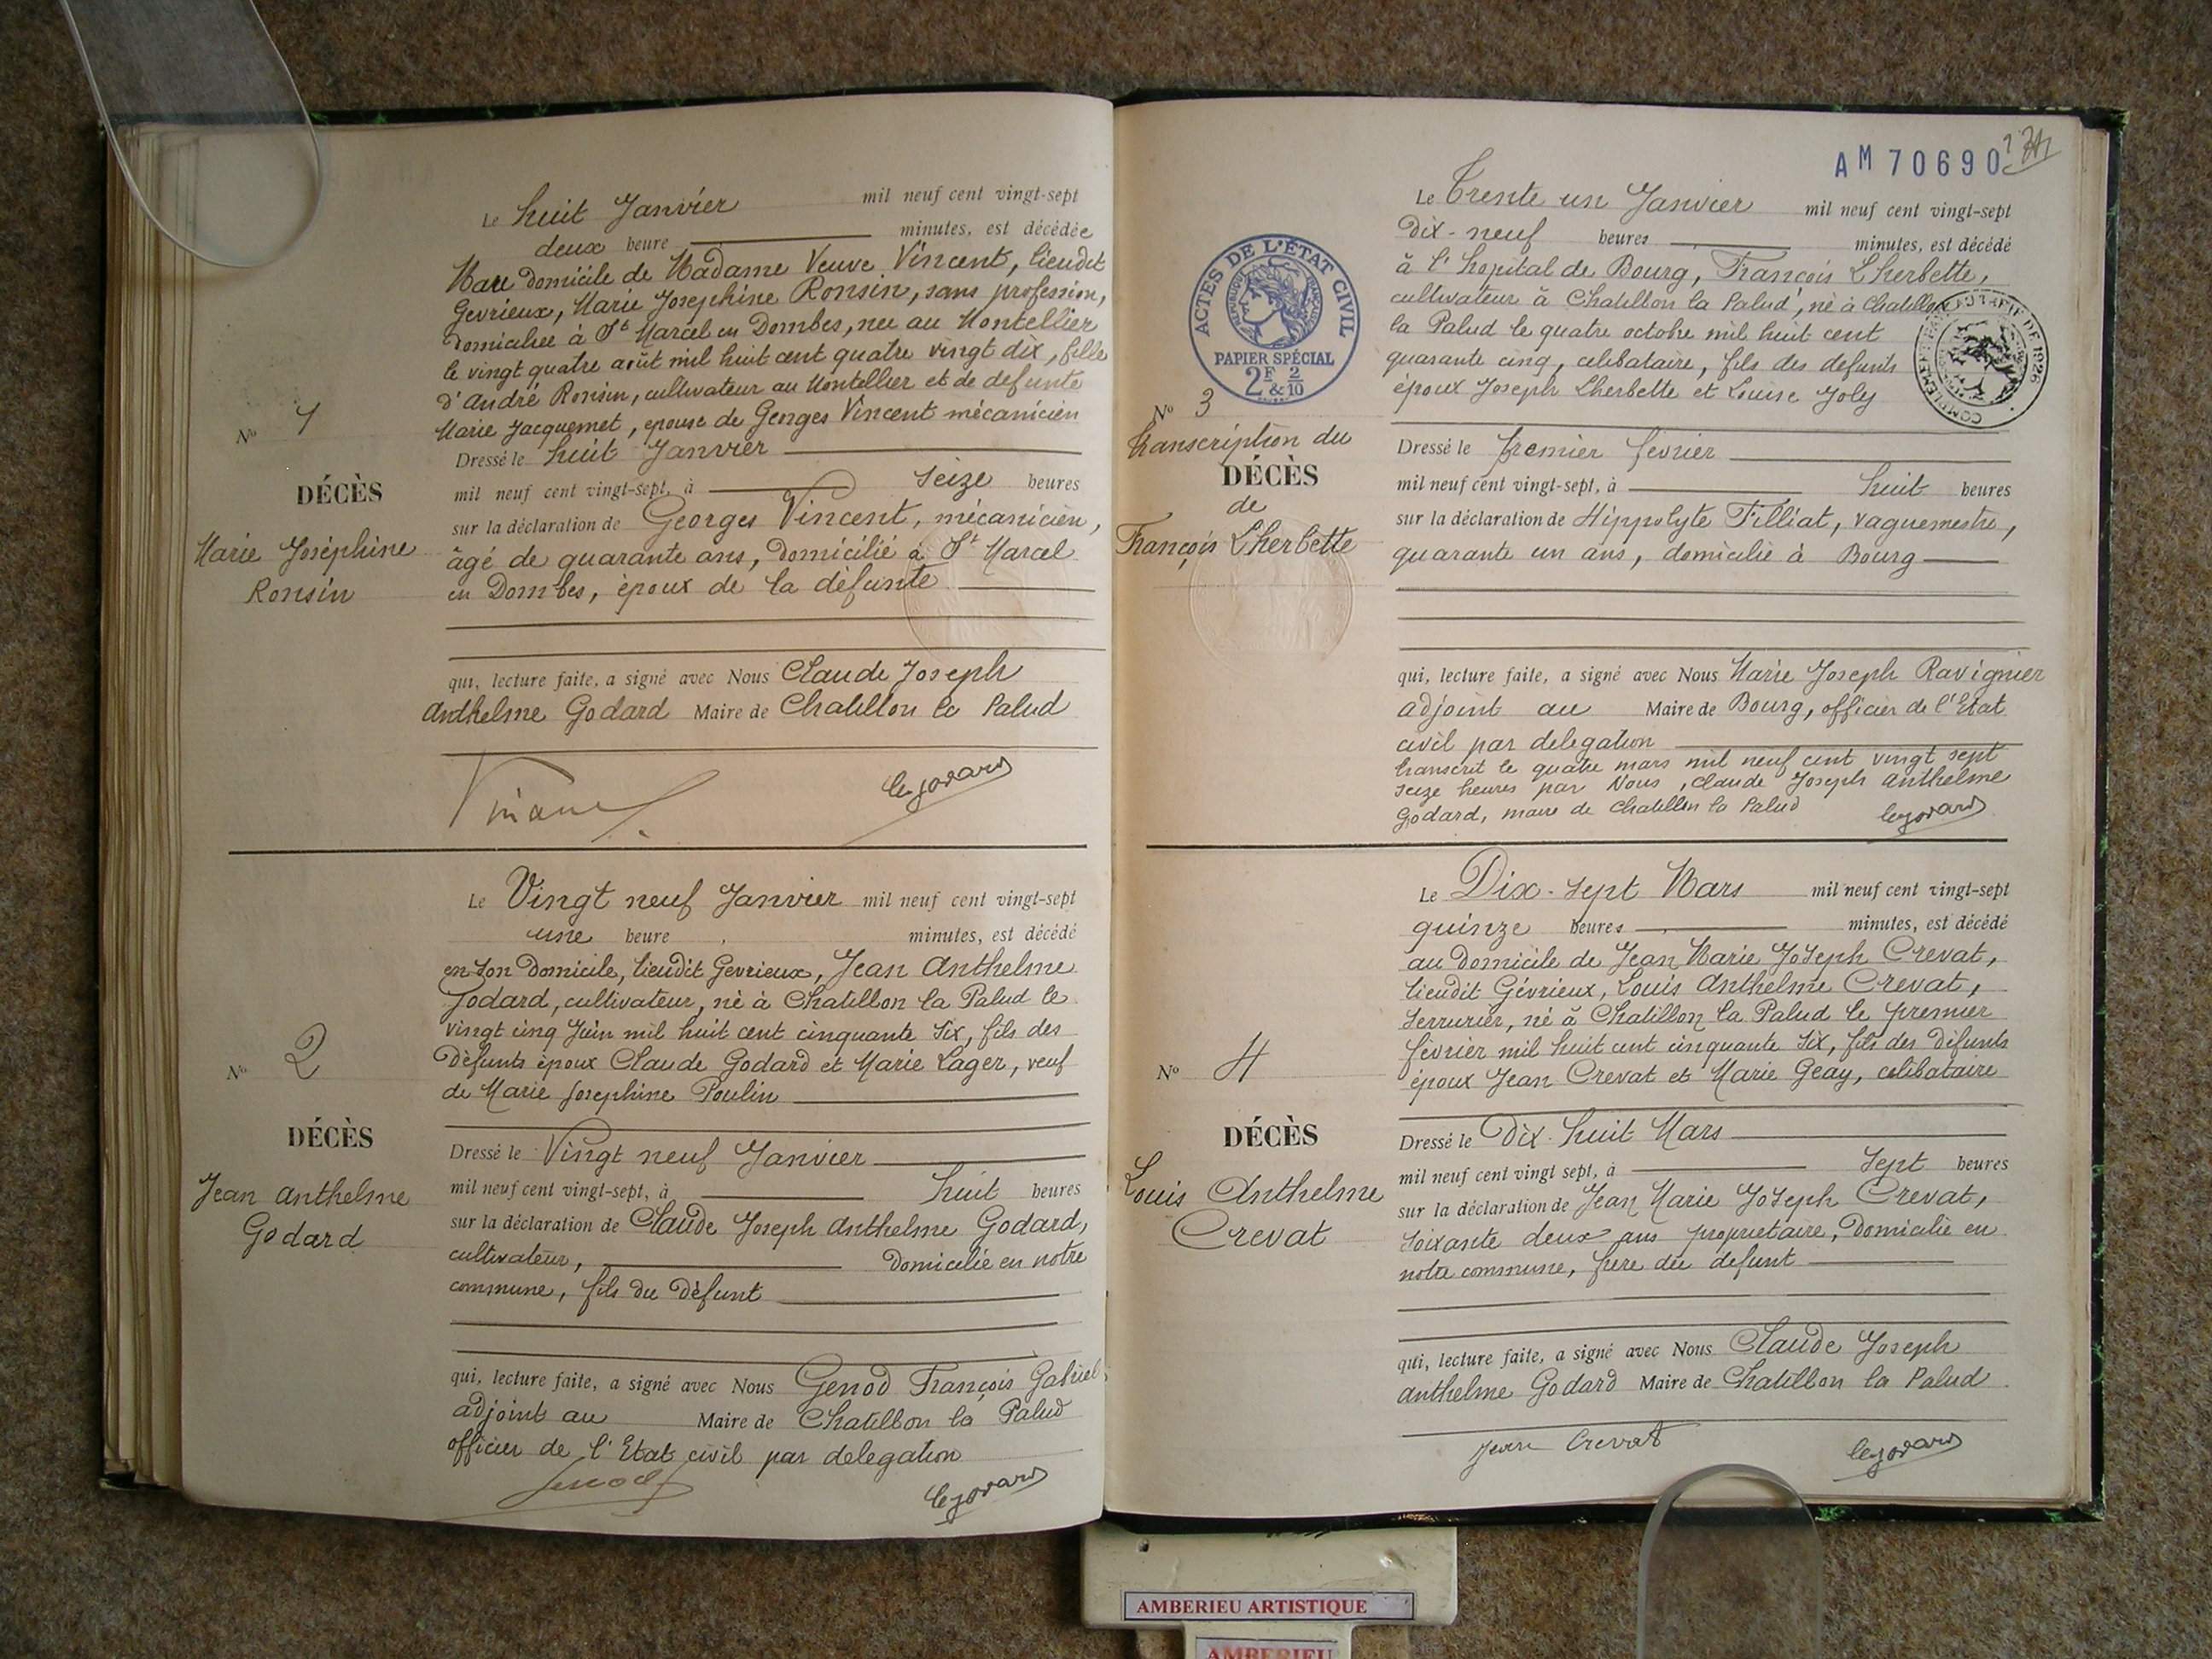 Le huit Janvier mil neuf cent vingt-sept
deux heure minutes, est décédée
domicile de Madame Veuve Vincent, lieudit
Gevrieux, Marie Josephine Ronsin, sans profession,
domiciliée à St Marcel en Dombes, née au Montellier
le vingt quatre août mil huit cent quatre vingt dix, fille
d'André Ronsin, cultivateur au Montellier et de defunte
Marie Jacquemet, epouse de Georges Vincent mécanicien
No 1
DÉCÈS
Marie Joséphine
Ronsin
Dressé le huit Janvier
mil neuf cent vingt-sept, à seize heures
sur la déclaration de Georges Vincent, mécanicien,
âgé de quarante ans, domicilié à St Marcel
en Dombes, époux de la défunte
qui, lecture faite, a signé avec Nous Claude Joseph
Anthelme Godard Maire de Chatillon la Palud
Vincent
Le Vingt neuf Janvier mil neuf cent vingt-sept
une heure minutes, est décédé
en son domicile, lieudit Gevrieux, Jean Anthelme
Godard, cultivateur, né à Chatillon la Palud le
vingt cinq Juin mil huit cent cinquante six, fils des
défunts époux Claude Godard et Marie Lager, veuf
de Marie Josephine Poulin
No 2
DÉCÈS
Jean Anthelme
Godard
Dressé le Vingt neuf Janvier
mil neuf cent vingt-sept, à huit heures
sur la déclaration de Claude Joseph Anthelme Godard,
cultivateur, domicilié en notre
commune, fils du défunt
qui, lecture faite, a signé avec Nous Genod François Gabriel,
adjoint au Maire de Chatillon la Palud
officier de l'Etat civil par delegation
Genod
AM 70690
Le Trente un Janvier mil neuf cent vingt-sept
Dix-neuf heures minutes, est décédé
à l'hopital de Bourg, François Lherbette,
cultivateur à Chatillon la Palud, né à Chatillon
la Palud le quatre octobre mil huit cent
quarante cinq, celibataire, fils des defunts
époux Joseph Lherbette et Louise Joly
ACTES DE L'ÉTAT CIVIL
PAPIER SPÉCIAL
2F & 2/10
No 3
transcription du
DÉCÈS
de
François Lherbette
Dressé le premier fevrier
mil neuf cent vingt-sept, à huit heures
sur la déclaration de Hippolyte Filliat, vaguemestre,
quarante un ans, domicilié à Bourg
qui, lecture faite, a signé avec Nous Marie Joseph Ravignier
adjoint au Maire de Bourg, officier de l'Etat
civil par delegation
transcrit le quatre mars mil neuf cent vingt sept
seize heures par Nous, Claude Joseph Anthelme
Godard, maire de Chatillon la Palud
Le Dix-sept Mars mil neuf cent vingt-sept
quinze heures minutes, est décédé
au domicile de Jean Marie Joseph Crevat,
lieudit Gévrieux, Louis Anthelme Crevat,
serrurier, né à Chatillon la Palud le premier
février mil huit cent cinquante six, fils des défunts
époux Jean Crevat et Marie Geay, celibataire
No 4
DÉCÈS
Louis Anthelme
Crevat
Dressé le Dix-huit Mars
mil neuf cent vingt sept, à sept heures
sur la déclaration de Jean Marie Joseph Crevat,
soixante deux ans propriétaire, domicilié en
notre commune, frere du defunt
qui, lecture faite, a signé avec Nous Claude Joseph
Anthelme Godard Maire de Chatillon la Palud
Jean Crevat
AMBERIEU ARTISTIQUE
AMBERIEU